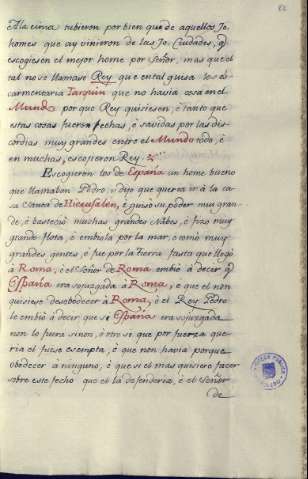 Á la cima tubieron por bien que de aquellos Jo.
homes que ay vinieron de las Jo. Ciudades, q̃
escogiesen el mejor home por Señor, mas que el
tal no se llamase Rey que en tal guisa les es-
carmentaria Tarquin que no havia cosa en el
Mundo porque Rey quisiesen, é tanto que
estas cosas fueron fechas, é savidas por las dis-
cordias muy grandes entre el Mundo todo, é
en muchas, escogieron Rey.
Escogieron los de España un home bueno
que llamaban Pedro, é dijo que queria ir á la ca-
sa Santa de Hierusalén, é guisó su poder muy gran-
de, é basteció muchas grandes Nabes, é fizo muy
grande flota, é embiola por la mar, é tomó muy
grandes gentes, é fue por la tierra fasta que llegó
á Roma, é el Señor de Roma embió á decir q̃
España era sojuzgada á Roma, é que el non
quisiese desobedecer á Roma, é el Rey Pedro
le embió á decir que si España era sojuzgada
non lo fuera sinon, é otro si que por fuerza que-
ria él fuese esempta, é que non havia porque
obedecer á ninguno, é que si el mas quisiere facer
sobre este fecho que el la defenderia, é el Señor
de